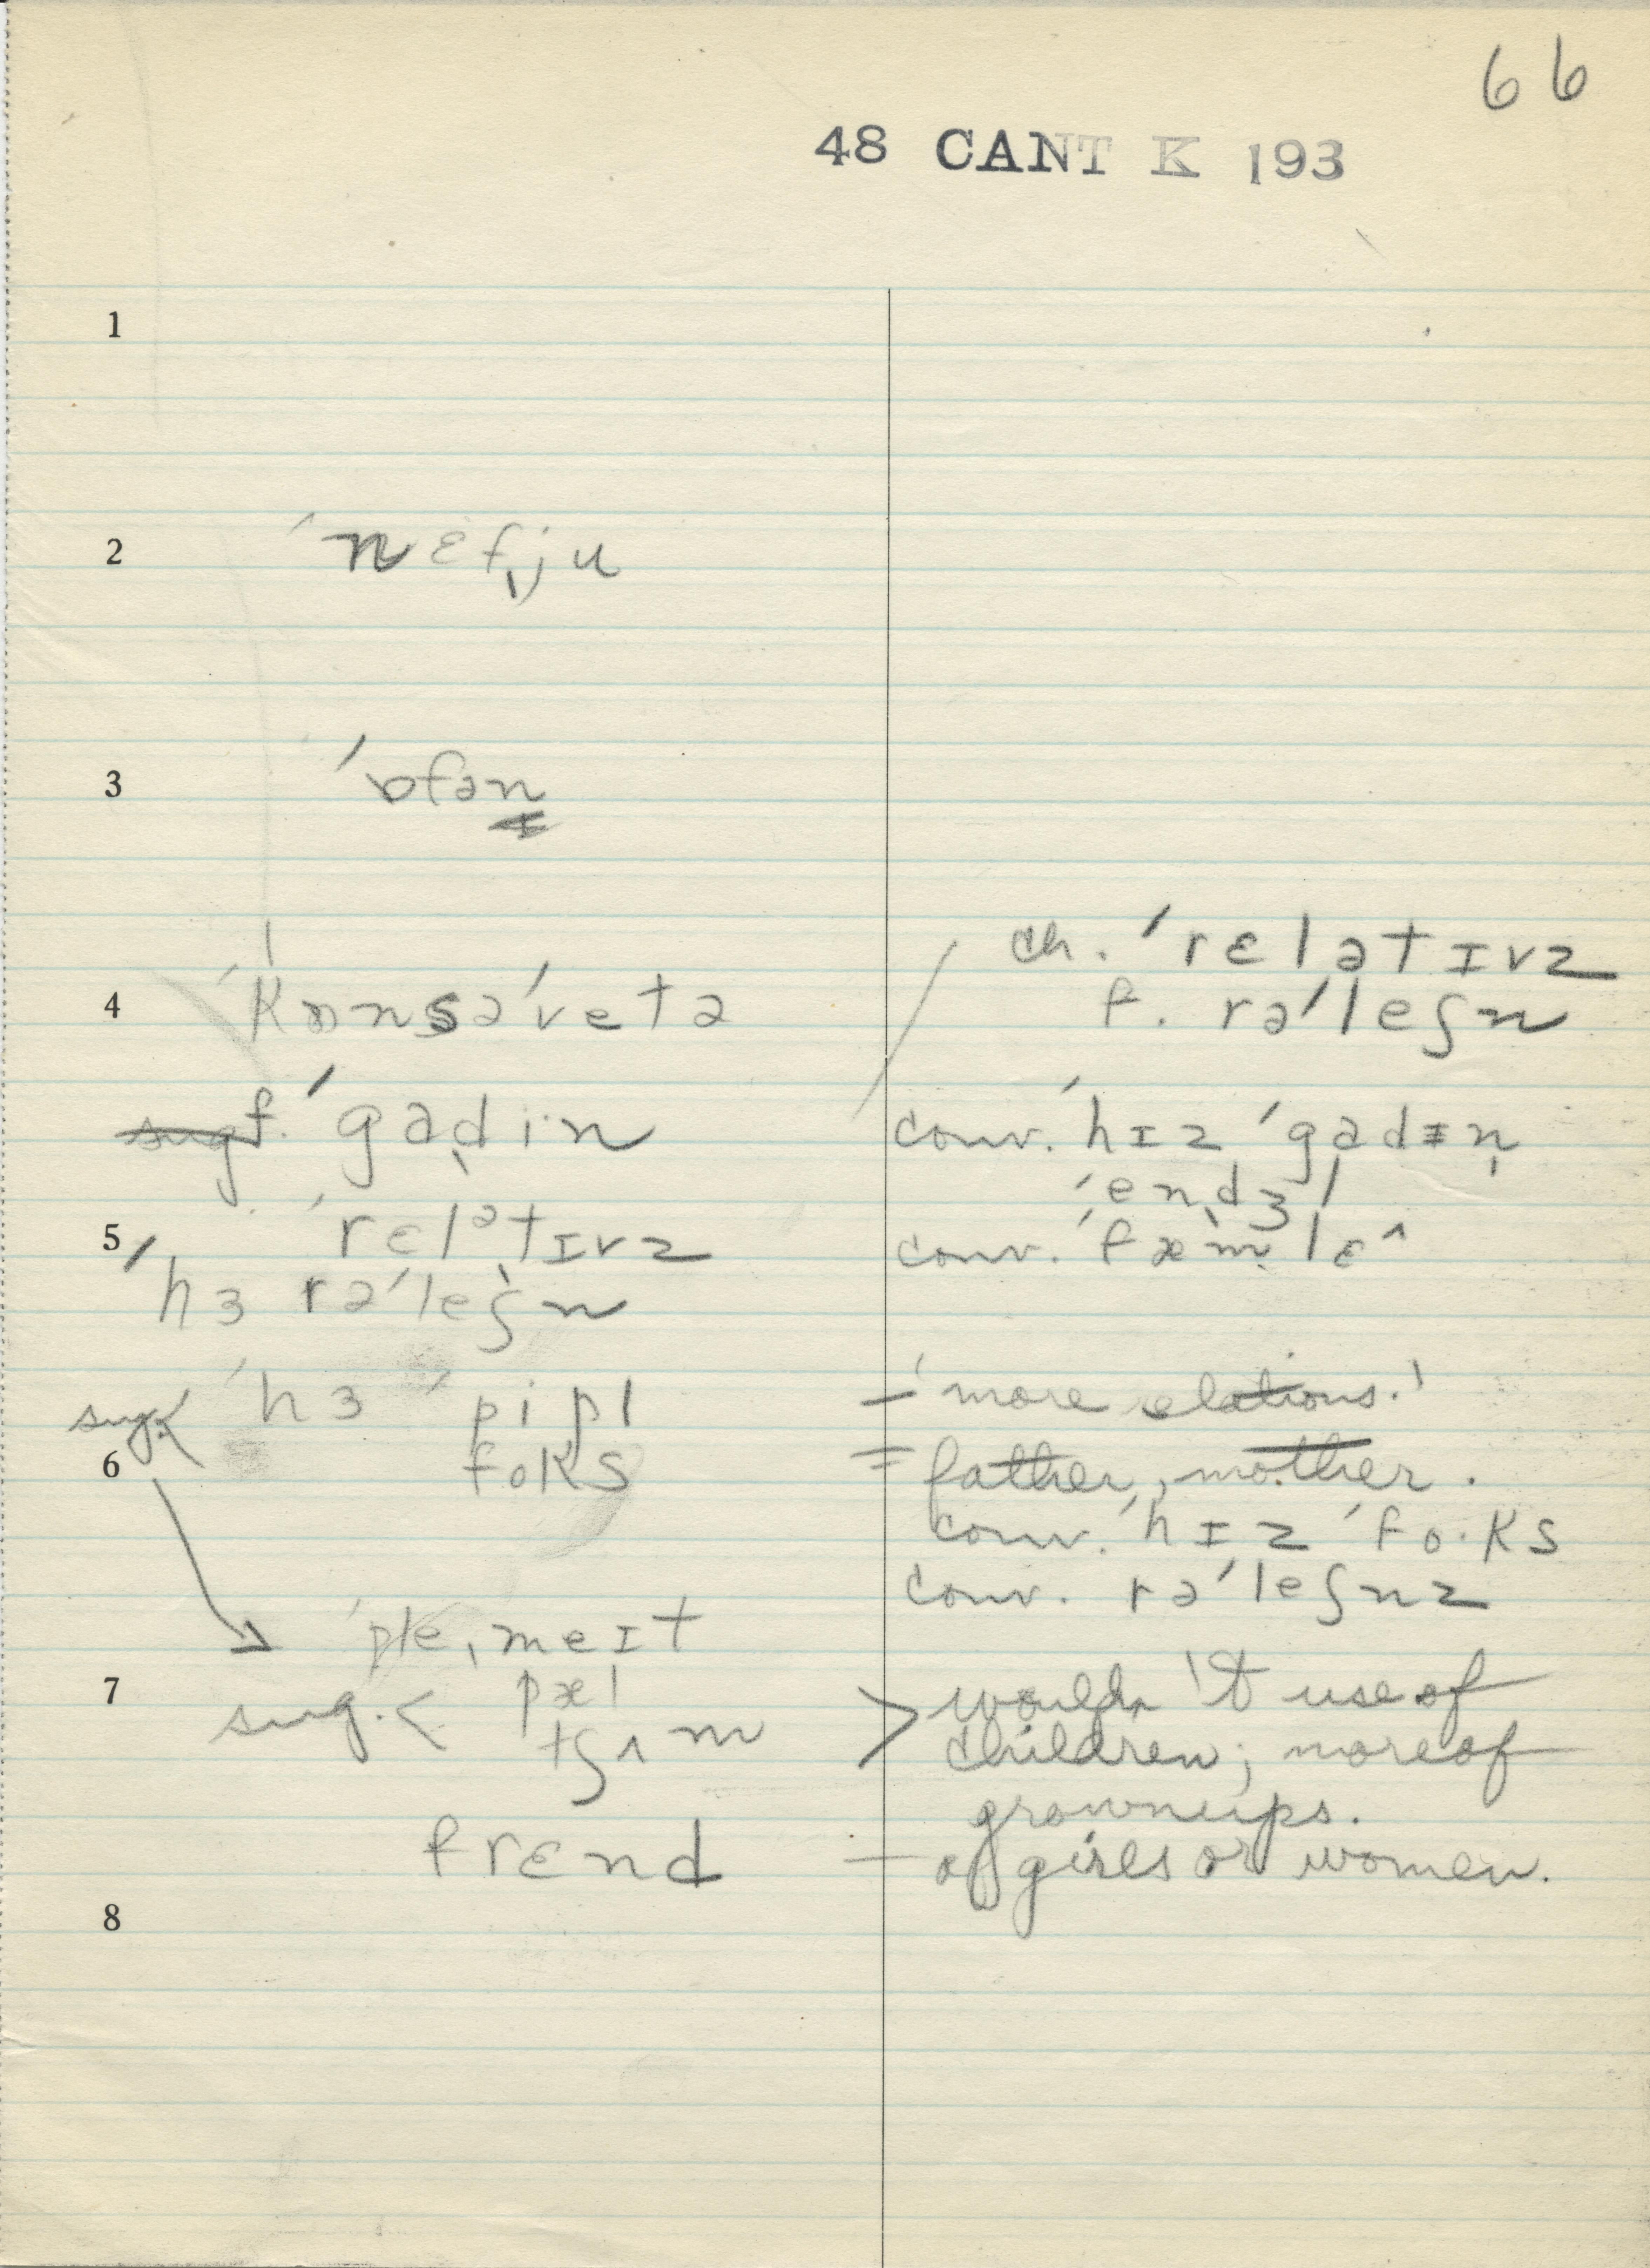 66
48 CANT K 193
1
2 ˈnɛfˌju
3 ˈɒfən
4 ˈkɒnsəˈvetə
ch. ˈrɛlətɪvz
f. rəˈleʃn
f. ˈgɑdin
conv. ˈhɪz ˈgɑdɪn
ˈendʒl
5 ˈrɛlətɪvz
conv. ˈfæmlɛ^
ˈhɜ rəˈleʃn
sug. < ˈhɜ ˈpipl
– 'more relations.'
6 foks
= father, mother.
conv. ˈhɪz ˈfo·ks
conv. rəˈleʃnz
ˈpleˌmeɪt
7 sug. < pæl
> wouldn't use of
tʃʌm
children; more of
grownups.
frɛnd – of girls or women.
8